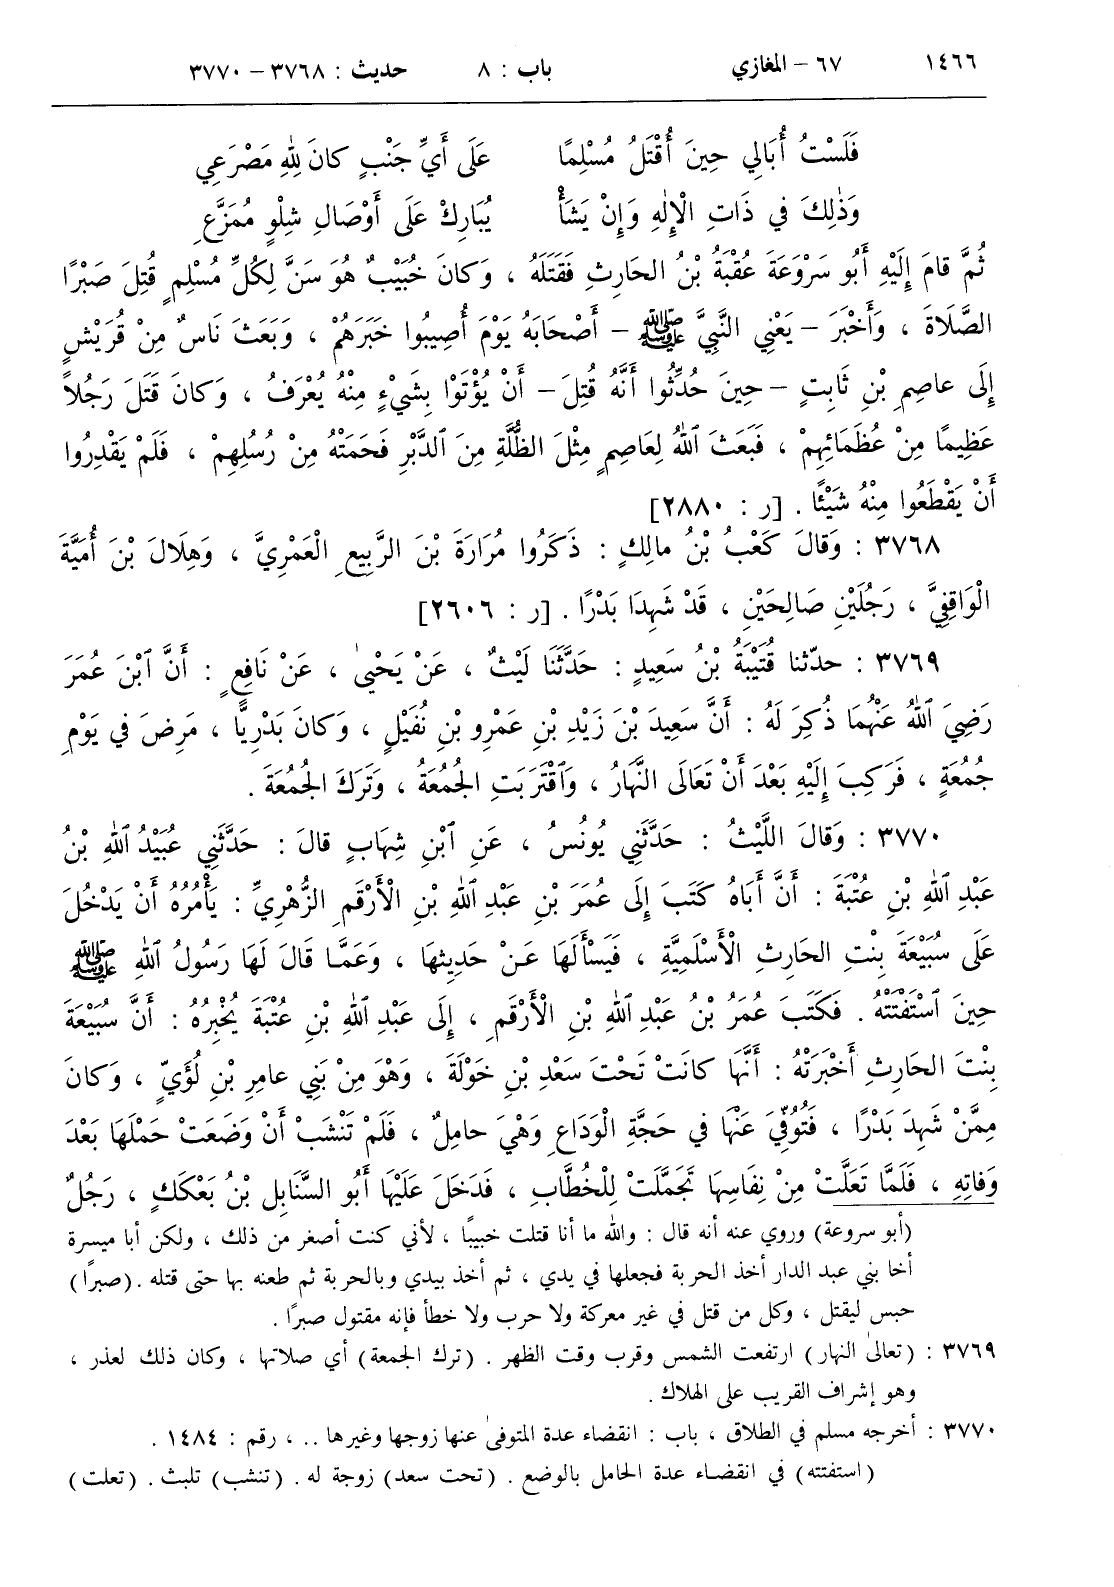 ١٤٦٦ ٦٧ – المغازي باب : ٨ حديث : ٣٧٦٨ – ٣٧٧٠
فَلَسْتُ أُبَالِي حِينَ أُقْتَلُ مُسْلِمًا عَلَى أَيِّ جَنْبٍ كانَ لِلّٰهِ مَصْرَعِي
وَذٰلِكَ في ذَاتِ الْإِلٰهِ وَإِنْ يَشَأْ يُبَارِكْ عَلَى أَوْصَالِ شِلْوٍ مُمَزَّعِ
ثُمَّ قامَ إِلَيْهِ أَبُو سَرْوَعَةَ عُقْبَةُ بْنُ الحَارِثِ فَقَتَلَهُ ، وَكانَ خُبَيْبٌ هُوَ سَنَّ لِكُلِّ مُسْلِمٍ قُتِلَ صَبْرًا
الصَّلَاةَ ، وَأَخْبَرَ – يَعْنِي النَّبِيَّ ﷺ – أَصْحَابَهُ يَوْمَ أُصِيبُوا خَبَرَهُمْ ، وَبَعَثَ نَاسٌ مِنْ قُرَيْشٍ
إِلَى عاصِمِ بْنِ ثَابِتٍ – حِينَ حُدِّثُوا أَنَّهُ قُتِلَ – أَنْ يُؤْتَوْا بِشَيْءٍ مِنْهُ يُعْرَفُ ، وَكانَ قَتَلَ رَجُلاً
عَظِيمًا مِنْ عُظَمَائِهِمْ ، فَبَعَثَ ٱللّٰهُ لِعَاصِمٍ مِثْلَ الظُّلَّةِ مِنَ ٱلدَّبْرِ فَحَمَتْهُ مِنْ رُسُلِهِمْ ، فَلَمْ يَقْدِرُوا
أَنْ يَقْطَعُوا مِنْهُ شَيْئًا . [ر : ٢٨٨٠]
٣٧٦٨ : وَقالَ كَعْبُ بْنُ مالِكٍ : ذَكَرُوا مُرَارَةَ بْنَ الرَّبِيعِ الْعَمْرِيَّ ، وَهِلَالَ بْنَ أُمَيَّةَ
الْوَاقِفِيَّ ، رَجُلَيْنِ صَالِحَيْنِ ، قَدْ شَهِدَا بَدْرًا . [ر : ٢٦٠٦]
٣٧٦٩ : حدّثنا قُتَيْبَةُ بْنُ سَعِيدٍ : حَدَّثَنَا لَيْثٌ ، عَنْ يَحْيىٰ ، عَنْ نَافِعٍ : أَنَّ ٱبْنَ عُمَرَ
رَضِيَ ٱللّٰهُ عَنْهُمَا ذُكِرَ لَهُ : أَنَّ سَعِيدَ بْنَ زَيْدِ بْنِ عَمْرِو بْنِ نُفَيْلٍ ، وَكانَ بَدْرِيًّا ، مَرِضَ في يَوْمِ
جُمُعَةٍ ، فَرَكِبَ إِلَيْهِ بَعْدَ أَنْ تَعَالَى النَّهَارُ ، وَٱقْتَرَبَتِ الجُمُعَةُ ، وَتَرَكَ الجُمُعَةَ .
٣٧٧٠ : وَقالَ اللَّيْثُ : حَدَّثَنِي يُونُسُ ، عَنِ ٱبْنِ شِهَابٍ قالَ : حَدَّثَنِي عُبَيْدُ ٱللّٰهِ بْنُ
عَبْدِ ٱللّٰهِ بْنِ عُتْبَةَ : أَنَّ أَبَاهُ كَتَبَ إِلَى عُمَرَ بْنِ عَبْدِ ٱللّٰهِ بْنِ الْأَرْقَمِ الزُّهْرِيِّ : يَأْمُرُهُ أَنْ يَدْخُلَ
عَلَى سُبَيْعَةَ بِنْتِ الحَارِثِ الْأَسْلَمِيَّةِ ، فَيَسْأَلَهَا عَنْ حَدِيثِهَا ، وَعَمَّا قَالَ لَهَا رَسُولُ ٱللّٰهِ ﷺ
حِينَ ٱسْتَفْتَتْهُ . فَكَتَبَ عُمَرُ بْنُ عَبْدِ ٱللّٰهِ بْنِ الْأَرْقَمِ ، إِلَى عَبْدِ ٱللّٰهِ بْنِ عُتْبَةَ يُخْبِرُهُ : أَنَّ سُبَيْعَةَ
بِنْتَ الحَارِثِ أَخْبَرَتْهُ : أَنَّهَا كانَتْ تَحْتَ سَعْدِ بْنِ خَوْلَةَ ، وَهْوَ مِنْ بَنِي عامِرِ بْنِ لُؤَيٍّ ، وَكانَ
مِمَّنْ شَهِدَ بَدْرًا ، فَتُوُفِّيَ عَنْهَا في حَجَّةِ الْوَدَاعِ وَهْيَ حامِلٌ ، فَلَمْ تَنْشَبْ أَنْ وَضَعَتْ حَمْلَهَا بَعْدَ
وَفاتِهِ ، فَلَمَّا تَعَلَّتْ مِنْ نِفَاسِهَا تَجَمَّلَتْ لِلْخُطَّابِ ، فَدَخَلَ عَلَيْهَا أَبُو السَّنَابِلِ بْنُ بَعْكَكٍ ، رَجُلٌ
(أبو سروعة) وروي عنه أنه قال : والله ما أنا قتلت خبيبًا ، لأني كنت أصغر من ذلك ، ولكن أبا ميسرة
أخا بني عبد الدار أخذ الحربة فجعلها في يدي ، ثم أخذ بيدي وبالحربة ثم طعنه بها حتى قتله . (صبرًا)
حبس ليقتل ، وكل من قتل في غير معركة ولا حرب ولا خطأ فإنه مقتول صبرًا .
٣٧٦٩ : (تعالىٰ النهار) ارتفعت الشمس وقرب وقت الظهر . (ترك الجمعة) أي صلاتها ، وكان ذلك لعذر ،
وهو إشراف القريب على الهلاك .
٣٧٧٠ : أخرجه مسلم في الطلاق ، باب : انقضاء عدة المتوفىٰ عنها زوجها وغيرها .. ، رقم : ١٤٨٤ .
(استفتته) في انقضاء عدة الحامل بالوضع . (تحت سعد) زوجة له . (تنشب) تلبث . (تعلت)